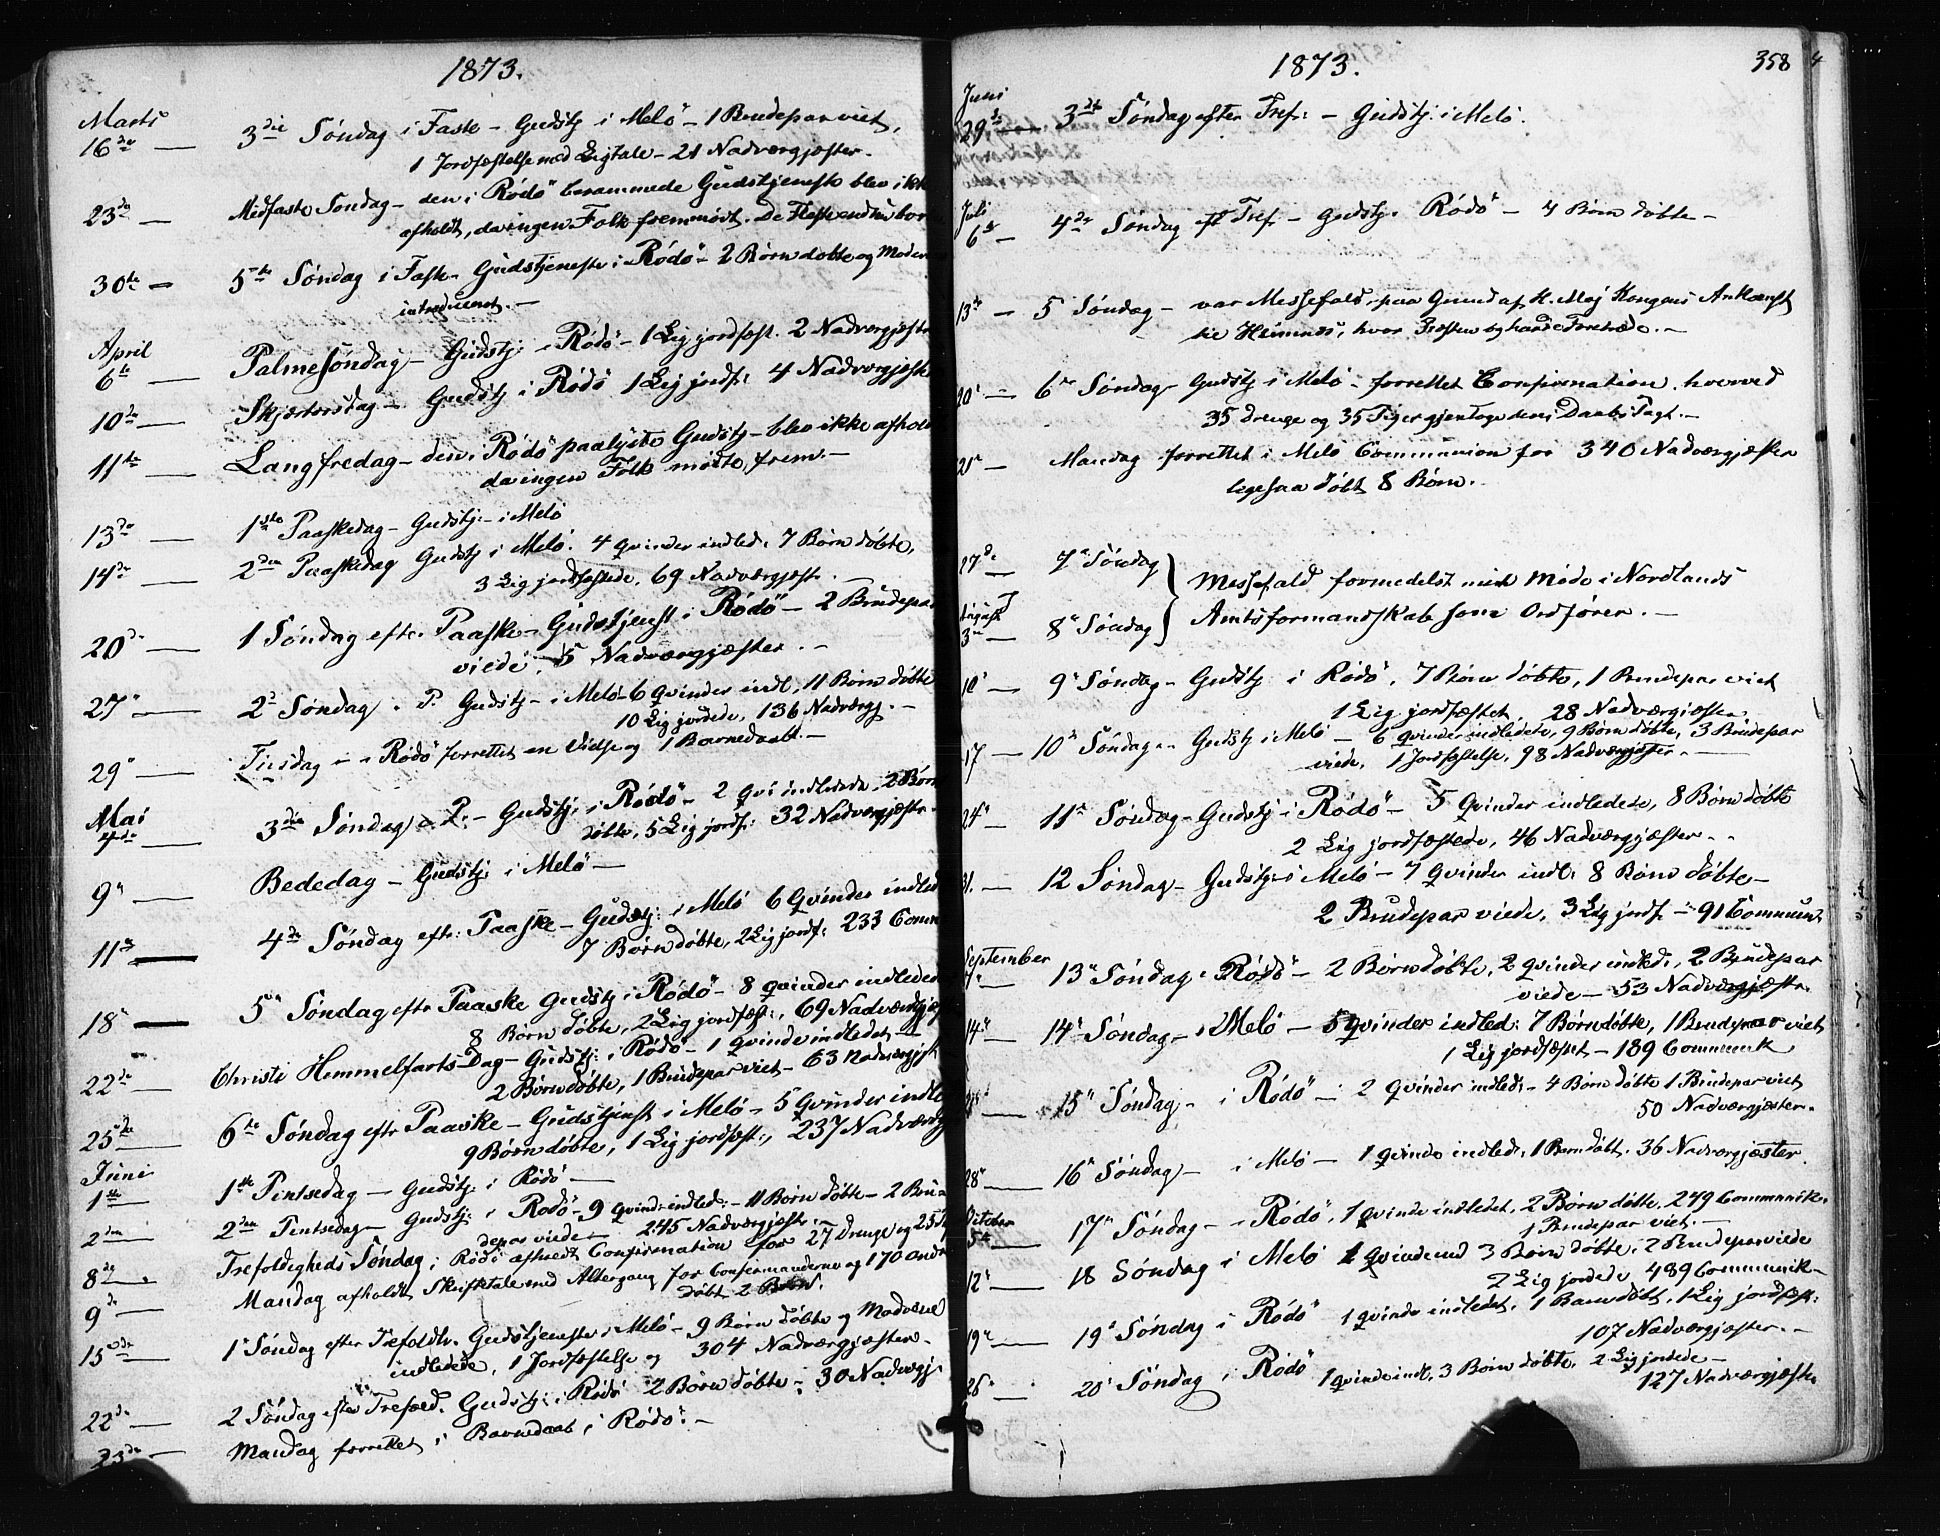 1873.
Marts
16de — 3die Søndag i Faste – Gudstj. i Melö – 1 Brudepar viet,
1 Jordfæstelse med Ligtale – 21 Nadvergjæster.
23de — Midfaste Søndag – den i Rödö berammede Gudstjeneste blev ikke
afholdt, da ingen Folk fremmødt. De Fleste
30te — 5te Søndag i Faste – Gudstjeneste i Rödö – 2 Børn døbte og Mødre
introduceret. –
April
6te — Palmesøndag – Gudstj. i Rödö – 1 Lig jordfæst. 2 Nadvergjæster
10de — Skjærtorsdag – Gudstj i Rödö 1 Lig jordf: 4 Nadvergjæste
11te — Langfredag – den i Rödö paalyste Gudstj – blev ikke afhold
da ingen Folk mødte frem. –
13de — 1ste Paaskedag – Gudstj: – i Melö
14de — 2den Paaskedag Gudstj i Melö. 4 Qvinder indled. 7 Børn døbte,
3 Lig jordfæstede, 69 Nadvergjæstr.
20de — 1 Søndag efter Paaske – Gudstjenest i Rödö – 2 Brudepar
viede. 5 Nadvergjæster. –
27" — 2d Søndag e. P. Gudstj – i Melö – 6 Qvinder indl, 11 Børn døbte
10 Lig jordede, 136 Nadvergj. –
29" — Tirsdag – i Rödö forrettet en Vielse og 1 Barnedaab. –
Mai
4de — 3die Søndag e. P. – Gudstj. i Rödö – 2 Qvi indledede, 2 Børn
døbte, 5 Lig jordf: 32 Nadvergjæster.
9" — Bededag – Gudstj: i Melö –
11te — 4de Søndag eft: Paaske – Gudstj: i Melö 6 Qvinder indled
7 Børn døbte, 2 Lig jordf: 233 Comm
18" — 5" Søndag eftr Paaske Gudstj i Rödö – 8 Qvinder indlede
8 Børn døbte, 2 Lig jordfæst:, 69 Nadvergjæ
22de — Christi Himmelfarts-Dag – Gudstj: i Rödö – 1 Qvinde indledet –
2 Børn døbte, 1 Brudepar viet – 63 Nadvergjæst
25de — 6te Søndag eftr Paaske – Gudstjenest i Melö – 5 Qvinder indle
9 Børn døbte, 1 Lig jordfæst:, 237 Nadverg
Juni
1ste — 1ste Pintsedag – Gudstj: i Rödö –
2den — 2den Pintsedag – Gudstj: i Rödö – 9 Qvind: indled: – 11 Børn døbte – 2 Bru-
depar viede – 245 Nadvergjæstr. –
8de — Trefoldigheds Søndag i Rödö afholdt Confirmation for 27 Drenge og 25
9de — Mandag afholdt Skriftetale med Altergang for Confirmanderne og 170 andr
døbt 2 Børn.
15de — 1" Søndag efter Trefoldh. Gudstjeneste i Melö – 9 Børn døbte og Mødrene
indledede, 1 Jordfæstelse og 304 Nadvergjæster.
22de — 2 Søndag efter Trefold. Gudstj: i Rödö 2 Børn døbte – 30 Nadvergj.
23de — Mandag forrettet 1 Barnedaab i Rödö. –
1873.
358
Juni
29de — 3die Søndag efter Tref: – Gudstj: i Melö.
Juli
6te — 4de Søndag eft Tref – Gudstj. Rödö – 4 Børn døbte –
13de — 5 Søndag – var Messefald, paa Grund af H. Maj Kongens Ankomst
til Hemnes, hvor Præsten havde Foretræde. –
20' — 6te Søndag – Gudstj i Melö – forrettet Confirmation, hvorved
35 Drenge og 35 Piger gjentoge deres Daabs Pagt. –
21de — Mandag forrettet i Melö Communion for 340 Nadvergjæster
ligesaa døbt 8 Børn. –
27de — 7" Søndag } Messefald formedelst mit Møde i Nordlands
August
3de — 8" Søndag } Amtsformandskab som Ordfører. –
10' — 9" Søndag – Gudstj: i Rödö, 7 Børn døbte, 1 Brudepar viet
1 Lig jordfæstet, 28 Nadvergjæster.
17 — 10" Søndag – Gudstj i Melö – 6 Qvinder indledede, 9 Børn døbte, 3 Brudepar
viede, 1 Jordfæstelse, 98 Nadvergjæster. –
24" — 11te Søndag – Gudstj i Rödö – 5 Qvinder indledede, 8 Børn døbte
2 Lig jordfæstede, 46 Nadvergjæster. –
31. — 12 Søndag – Gudstj: – i Melö – 7 Qvinder indl: 8 Børn døbte –
2 Brudepar viede, 3 Lig jordf – 91 Commun.
September
7" 13" Søndag i Rödö – 2 Børn døbte, 2 Qvinder indled:, 2 Brudepar
viede – 53 Nadvergjæstr.
14" — 14' Søndag – i Melö – 5 Qvinder indled: 7 Børn døbte, 1 Brudepar viet
1 Lig jordfæstet – 189 Communik.
— 15" Søndag – i Rödö – 2 Qvinder indled: – 4 Børn døbte 1 Brudepar viet
50 Nadvergjæster.
28" — 16" Søndag – i Melö – 1 Qvinde indled:, 1 Barn døbt. 36 Nadvergjæster.
October
5te — 17" Søndag – i Rödö, 1 Qvinde indledet, 2 Børn døbte, 249 Communik.
1 Brudepar viet. –
12' — 18 Søndag i Melö 1 Qvinde ind 3 Børn døbte, 2 Brudepar viede
2 Lig jordede 489 Communik –
19" — 19' Søndag i Rödö 1 Qvinde indledet, 1 Barn døbt, 1 Lig jordfæst:
107 Nadvergjæster. –
26" — 20' Søndag i Rödö 1 Qvinde indl, 3 Børn døbte, 2 Lig jordede –
127 Nadvergjæstr